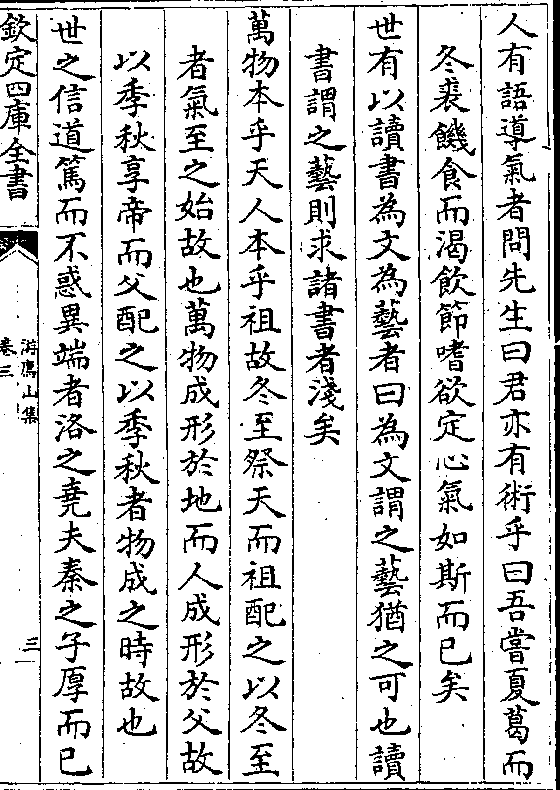 人有語導氣者問先生曰君亦有術乎曰吾嘗夏葛而
冬裘饑食而渴飲節嗜欲定心氣如斯而已矣
世有以讀書為文為藝者曰為文謂之藝猶之可也讀
書謂之藝則求諸書者淺矣
萬物本乎天人本乎祖故冬至祭天而祖配之以冬至
者氣至之始故也萬物成形於地而人成形於父故
以季秋享帝而父配之以季秋者物成之時故也
世之信道篤而不惑異端者洛之堯夫秦之子厚而已
欽定四庫全書
游廌山集
卷三
三